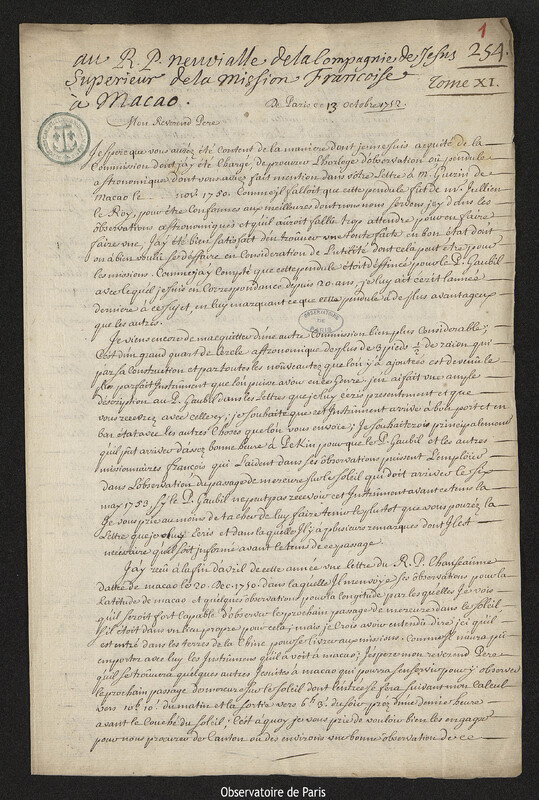 1
254.
au R. P. neuvialle de la Compagnie de Jesus
Superieur de la mission Francoise
Tome XI.
à Macao.
De Paris ce 13 octobre 1752.
Mon Reverend Pere
J'espere que vous aurés été content de la maniere dont je me suis acquité de la
Commission dont j'ay été Chargé, de procurer L'horloge d'observation ou pendule
astronomique dont vous aviés fait mention dans vôtre Lettre à M. Guerini de
Macao le nov. 1750. Comme il falloit que cette pendule fut de mr. Jullien
le Roy, pour être Conforme aux meilleures dont nous nous servons icy dans les
observations astronomiques et qu'il auroit fallu trop attendre pour en faire
faire une, J'ay été bien satisfait d'en trouver une toute faite en bon état dont
on a bien voulu se deffaire en Consideration de L'utilité dont cela peut être pour
les missions. Comme j'ay Compté que cette pendule étoit destinée pour le P. Gaubil
avec lequel je suis en Correspondance depuis 20. ans, je luy ai écrit L'année
derniere à ce sujet, en luy marquant ce que cette pendule a de plus avantageux
que les autres.
OBSERVATOIRE DE PARIS
Je viens encore de m'acquitter d'une autre Commission bien plus Considerable;
C'est d'un grand quart de Cercle astronomique de plus de 3 pieds ½ de raion qui
par sa Construction et par toutes les nouveautez que l'on y a ajoutées est devenu le
plus parfait Instrument que l'on puisse avoir en ce Genre; j'en ai fait une ample
description au P. Gaubil dans les Lettres que je luy écris presentement et que
vous recevrez avec celle cy; je souhaite que cet Instrument arrive à bon port et en
bon état avec les autres Choses que l'on vous envoie; Je souhaiterois principalement
qu'il put arriver d'assez bonne heure à Pekin pour que le P. Gaubil et les autres
missionnaires francois qui l'aident dans ses observations puissent L'emploier
dans L'observation du passage de mercure sur le Soleil qui doit arriver le six
may 1753. si le P. Gaubil ne peut pas recevoir cet Instrument avant ce tems la
Je vous prie au moins de tacher de luy faire tenir le plustot que vous pourez la
Lettre que je luy écris et dans laquelle Il y a plusieurs remarques dont Il est
necessaire qu'il soit informé avant le tems de ce passage.
J'ay reçû à la fin d'avril de cette année une lettre du R. P. Chanseaume
dattée de macao le 20. Dec. 1750. dans laquelle Il m'envoye ses observations pour la
Latitude de macao et quelques observations pour la longitude par lesquelles Je vois
qu'il seroit fort Capable d'observer le prochain passage de mercure dans le Soleil
s'il étoit dans un lieu propre pour cela; mais je Crois avoir entendu dire icy qu'il
est entré dans les terres de la Chine pour se livrer aux missions; Comme il n'aura pû
emporter avec luy les Instrumens qu'il a voit à macao; j'espere mon reverend Pere
qu'il se trouvera quelques autres Jesuites à macao qui pourra s'en servir pour y observer
le prochain passage de mercure sur le soleil dont l'entrée se fera suivant mon Calcul
vers 10h. 10'. du matin et la sortie vers 6h. 3'. du soir, prez d'une demie heure
avant le Couché du Soleil; C'est à quoy Je vous prie de vouloir bien les engager
pour nous procurer de Canton ou des environs une bonne observation de ce
Observatoire de Paris